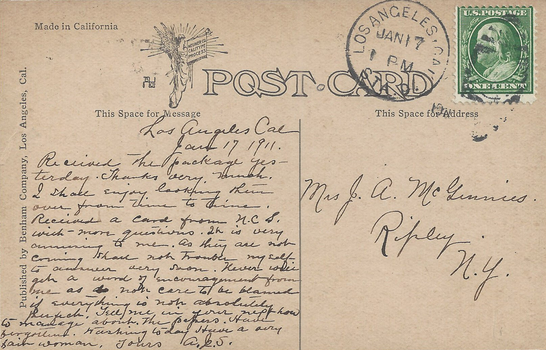 Made in California
POST CARD
LOS ANGELES, CAL.
JAN 17
1 PM
U.S. POSTAGE
ONE CENT
This Space for Message
This Space for Address
Published by Benham Company, Los Angeles, Cal.
Los Angeles Cal
Jan 17 1911.
Received the package yes-
terday. Thanks very much.
I shall enjoy looking them
over from time to time.
Received a card from N.C.S.
with more questions. It is very
amusing to me. As they are not
coming shall not trouble my self
to answer very soon. Never will
get a word of encouragement from
me as do not care to be blamed
if everything is not absolutely
perfect. Tell me in your next how
to manage about the papers. Have
forgotten. Washing to day. Have a very
fair woman. Yours A.E.S.
Mrs J. A. McGinnies.
Ripley.
N.Y.